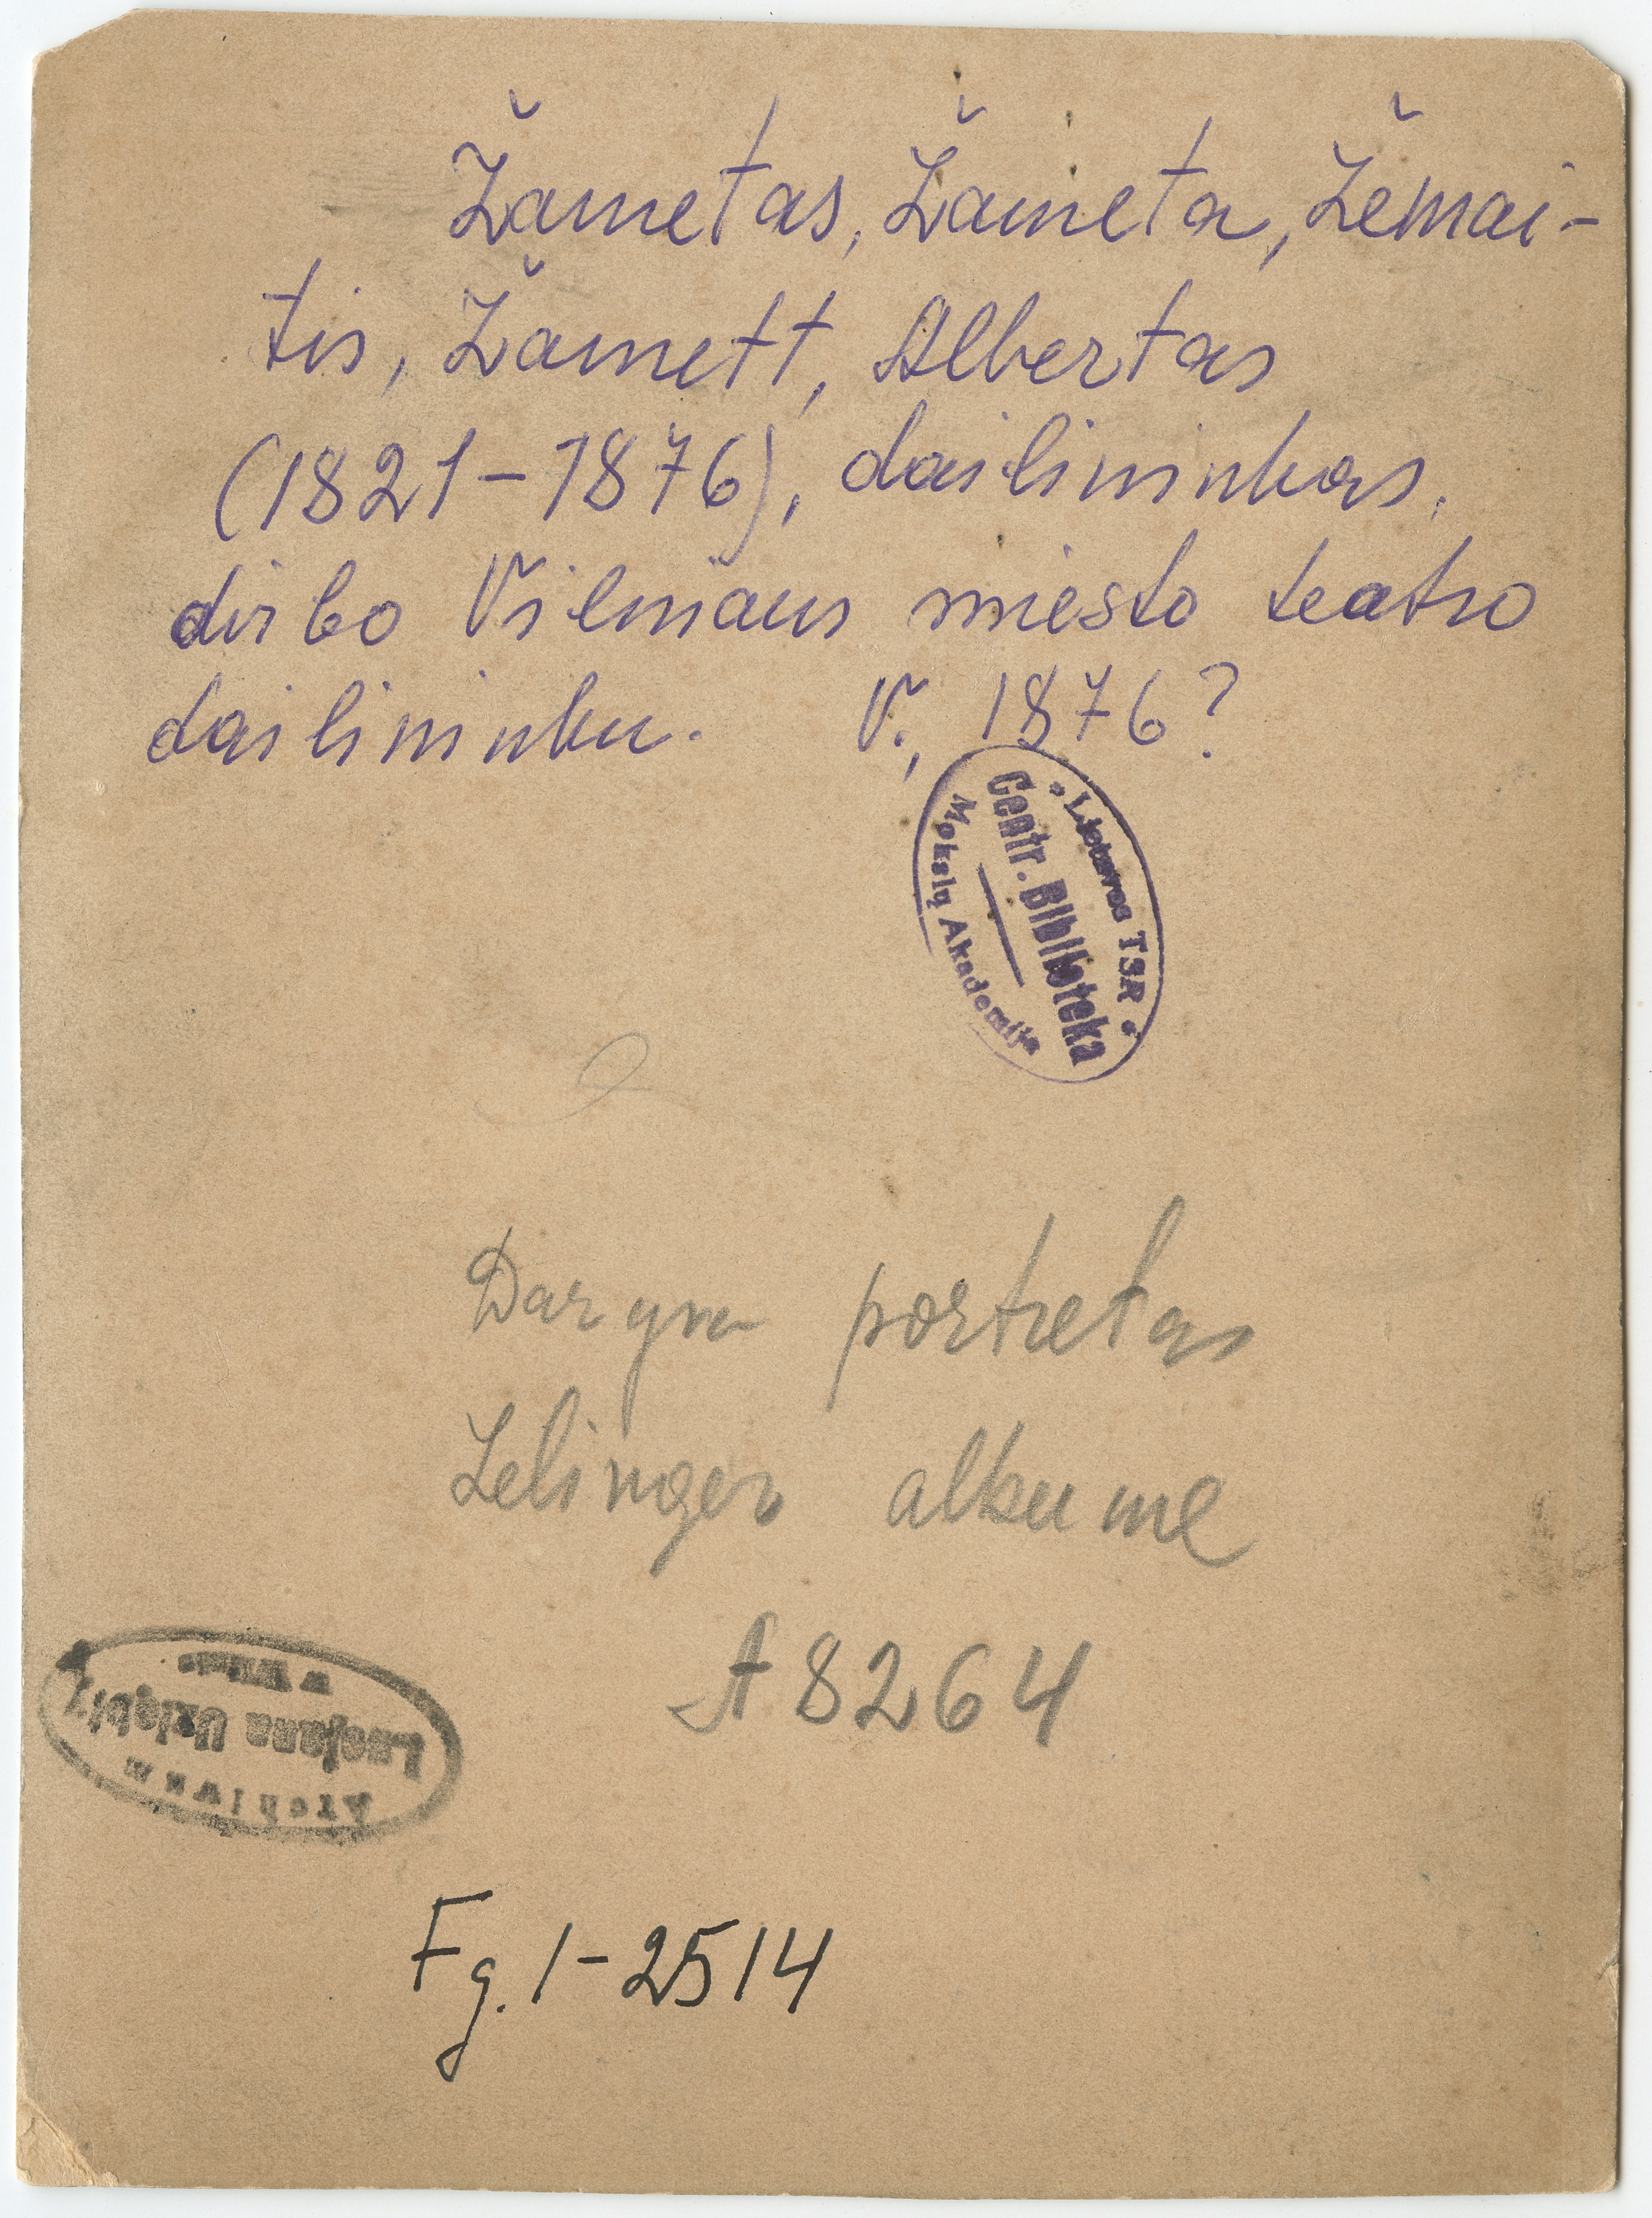 Žametas, Žameta, Žemai-
tis, Žamett, Albertas
(1821-1876), dailininkas.
dirbo Vilniaus miesto teatro
dailininku. V., 1876?
Lietuvos TSR
Centr. Biblioteka
Mokslų Akademija
portretas
Zelinger albume
A 8264
Archiwum
Lucjana Uziębły
w Wilnie
Fg. 1-2514